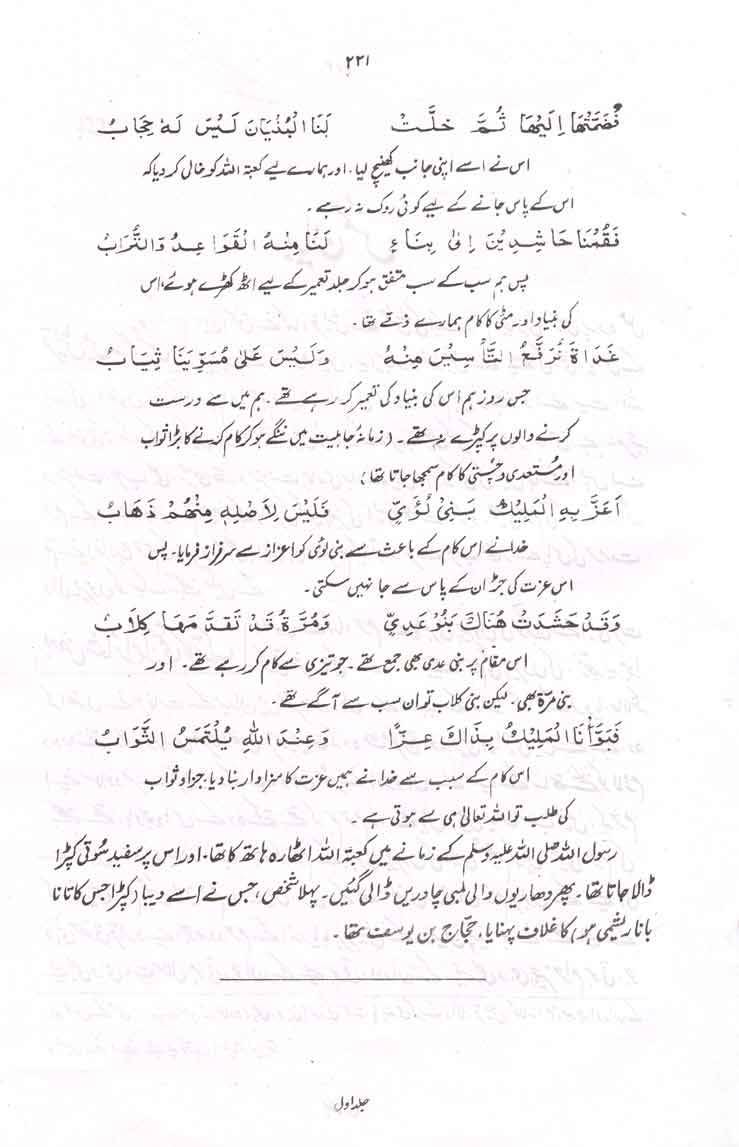 ۲۲۱
فَضَمَّتْهَا اِلَيْهَا ثُمَّ خلَّتْ لَنَا الْبُنْيَانَ لَيْسَ لَهٗ حِجَابُ
اس نے اسے اپنی جانب کھینچ لیا۔ اور ہمارے لیے کعبۃ اللہ کو خالی کر دیا کہ
اس کے پاس جانے کے لیے کوئی روک نہ رہے۔
فَقُمْنَا حَاشِدِيْنَ اِلٰى بِنَاءٍ لَنَا مِنْهُ الْقَوَاعِدُ وَالتُّرَابُ
پس ہم سب کے سب متفق ہو کر جلد تعمیر کے لیے اٹھ کھڑے ہوئے، اس
کی بنیاد اور مٹی کا کام ہمارے ذمے تھا۔
غَدَاةَ نُرَفِّعُ التَّأْسِيْسَ مِنْهُ وَلَيْسَ عَلٰى مُسَوِّيْنَا ثِيَابُ
جس روز ہم اس کی بنیاد کی تعمیر کر رہے تھے۔ ہم میں سے درست
کرنے والوں پر کپڑے نہ تھے۔ (زمانۂ جاہلیت میں ننگے ہو کر کام کرنے کا بڑا ثواب
اور مُستعدی و چُستی کا کام سمجھا جاتا تھا)
اَعَزَّ بِهِ الْمَلِيْكُ بَنِيْ لُؤَيٍّ فَلَيْسَ لِاَصْلِهٖ مِنْهُمْ ذَهَابُ
خدا نے اس کام کے باعث سے بنی لؤی کو اعزاز سے سرفراز فرمایا۔ پس
اس عزت کی جڑ ان کے پاس سے جا نہیں سکتی۔
وَقَدْ حَشَدَتْ هُنَاكَ بَنُوْعَدِيٍّ وَمُرَّةُ قَدْ تَقَدَّمَهَا كِلَابُ
اس مقام پر بنی عدی بھی جمع تھے۔ جو تیزی سے کام کر رہے تھے۔ اور
بنی مرّۃ بھی۔ لیکن بنی کلاب تو ان سب سے آگے تھے۔
فَبَوَّأَنَا الْمَلِيْكُ بِذَاكَ عِزًّا وَعِنْدَ اللّٰهِ يُلْتَمَسُ الثَّوَابُ
اس کام کے سبب سے خدا نے ہمیں عزت کا سزاوار بنا دیا۔ جزا و ثواب
کی طلب تو اللہ تعالیٰ ہی سے ہوتی ہے۔
رسول اللہ صلی اللہ علیہ وسلم کے زمانے میں کعبۃ اللہ اٹھارہ ہاتھ کا تھا۔ اور اس پر سفید سُوتی کپڑا
ڈالا جاتا تھا۔ پھر دھاریوں والی لمبی چادریں ڈالی گئیں۔ پہلا شخص، جس نے اسے دیبا (کپڑا جس کا تانا
بانا ریشمی ہو) کا غلاف پہنایا، حجّاج بن یوسف تھا۔
جلد اول